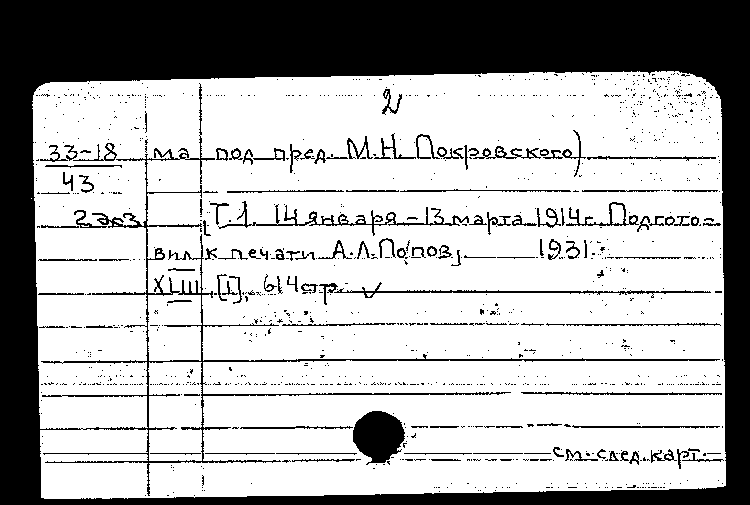 2
33-18 ма под пред. М.Н. Покровского)
43
2 экз. [Т.1. 14 января – 13 марта 1914г. Подгото=
вил к печати А.Л.Попов]. 1931.
XLIII, [I], 614стр. ✓
см. след. карт.